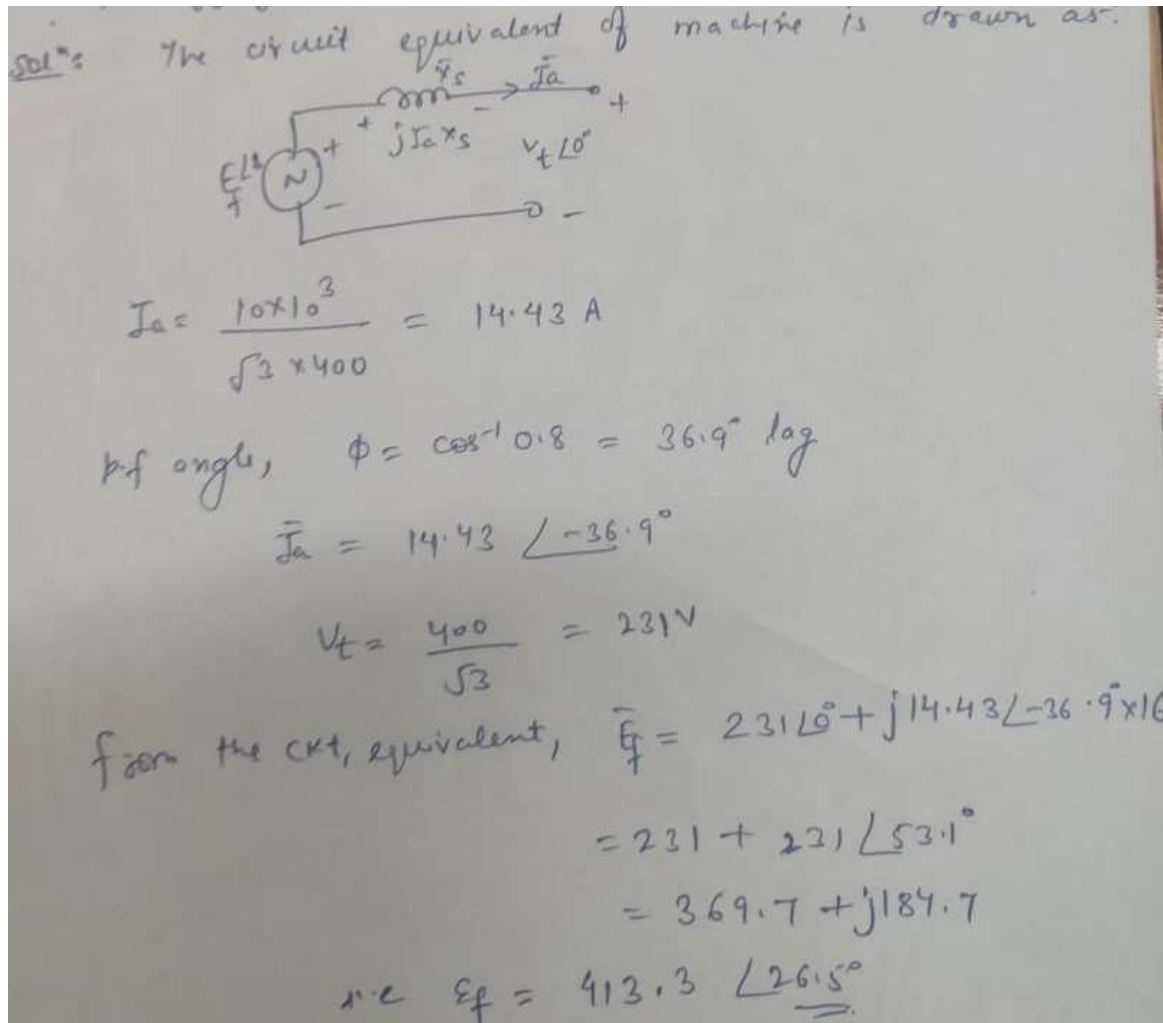 Solⁿ: The circuit equivalent of machine is drawn as-
Xs Īa
+ - +
+ jIaXs Vt∠0°
Ef∠δ ~
- -
Ia = 10×10³ / √3 ×400 = 14.43 A
p.f angle, φ = cos⁻¹ 0.8 = 36.9° lag
Īa = 14.43 ∠-36.9°
Vt = 400 / √3 = 231V
from the ckt, equivalent, Ēf = 231∠0° + j14.43∠-36.9°×16
= 231 + 231∠53.1°
= 369.7 + j184.7
i.e Ef = 413.3 ∠26.5°